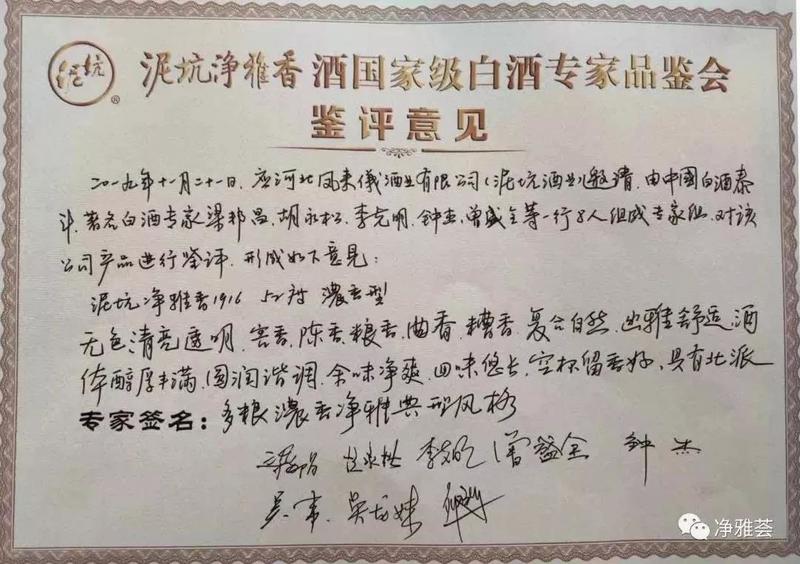 泥坑
®
泥坑净雅香酒国家级白酒专家品鉴会
鉴评意见
二〇一九年十一月二十一日，应河北凤来儀酒业有限公司（泥坑酒业）邀请，由中國白酒泰
斗、著名白酒专家梁邦昌、胡永松、李克明、钟杰、曾盛全等一行8人组成专家组，对该
公司产品进行鉴评，形成如下意见：
泥坑净雅香1916 52度 濃香型
无色清亮透明，窖香、陈香、粮香、曲香、糟香，复合自然，幽雅舒适，酒
体醇厚丰满，圆润谐调，余味净爽，回味悠长，空杯留香好，具有北派
专家签名：多粮濃香净雅典型风格
梁邦昌 胡永松 李克明 曾盛全 钟杰
净雅荟